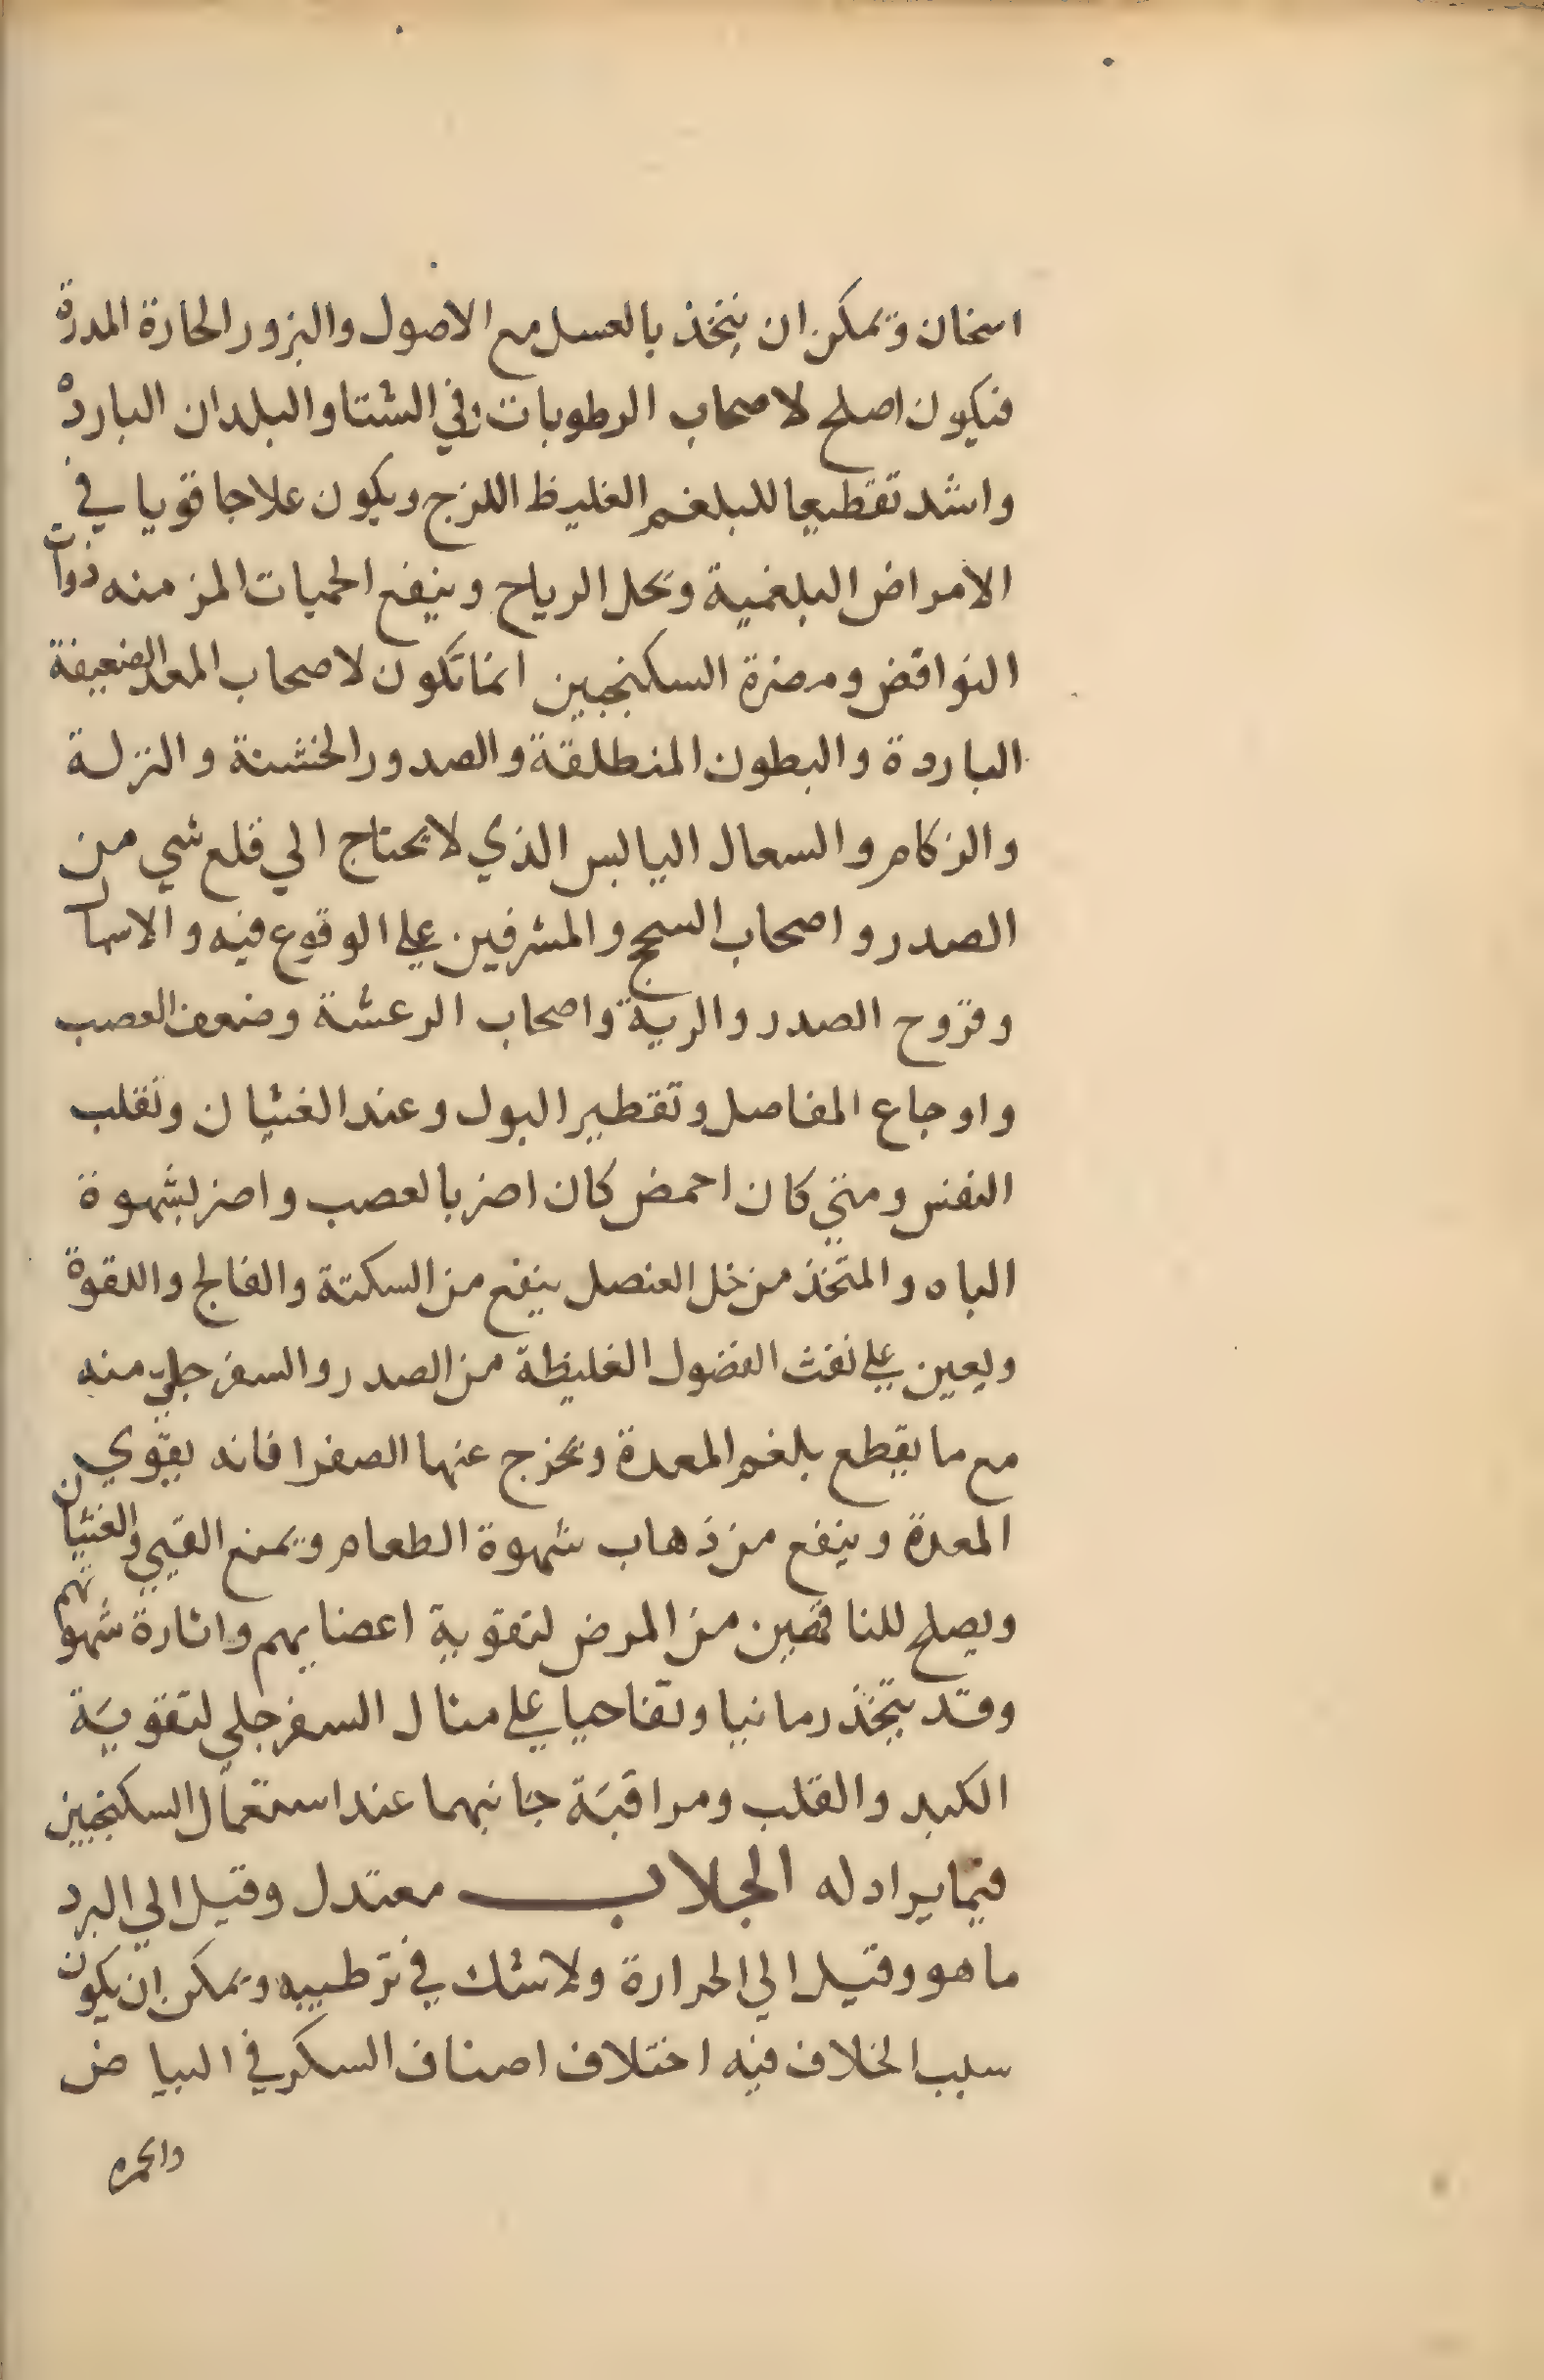 اسخان ويمكن ان يتخذ بالعسل مع الاصول والبزور الحارة المدرة
فيكون اصلح لاصحاب الرطوبات وفي الشتا والبلدان الباردة
واشد تقطيعا للبلغم الغليظ اللزج ويكون علاجا قويا في
الامراض البلغمية ويحل الرياح وينفع الحميات المزمنه ذوات
النوافض ومضرة السكنجبين انما تكون لاصحاب المعد الضعيفة
الباردة والبطون المنطلقة والصدور الخشنة والنزلة
والزكام والسعال اليابس الذي لا يحتاج الي قلع شي من
الصدر واصحاب السحج والمشرفين علي الوقوع فيه والاسهال
وقروح الصدر والرية واصحاب الرعشة وضعف العصب
واوجاع المفاصل وتقطير البول وعند الغثيان وتقلب
النفس ومتي كان احمض كان اضر بالعصب واضر بشهوة
الباه والمتخذ من خل العنصل ينفع من السكتة والفالج واللقوة
ويعين علي نفث الفضول الغليظة من الصدر والسفرجلي منه
مع ما يقطع بلغم المعدة ويخرج عنها الصفرا فانه يقوي
المعدة وينفع من ذهاب شهوة الطعام ويمنع القيي والغثيان
ويصلح للناقهين من المرض لتقوية اعضايهم واثارة شهوتهم
وقد يتخذ رمانيا وتفاحيا علي مثال السفرجلي لتقوية
الكبد والقلب ومراقبة جانبهما عند استعمال السكنجبين
فيما يراد له الجلاب معتدل وقيل الي البرد
ما هو وقيل الي الحرارة ولا شك في ترطيبه ويمكن ان يكون
سبب الخلاف فيه اختلاف اصناف السكر في البياض
والحمره